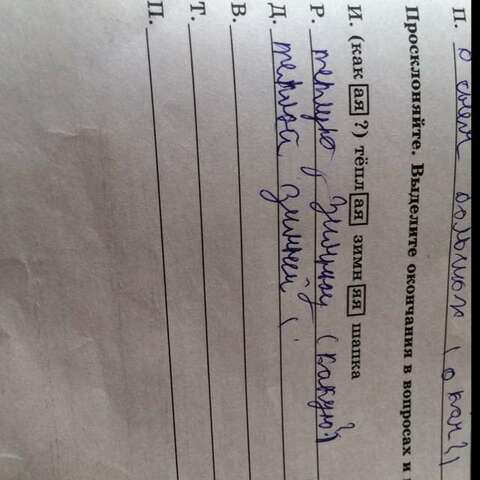 П. о синем большом (о как?)
Просклоняйте. Выделите окончания в вопросах и
И. (как ая ?) тёпл ая зимн яя шапка
Р. теплую зимнюю (какую?)
Д. теплой зимней (
В.
Т.
П.